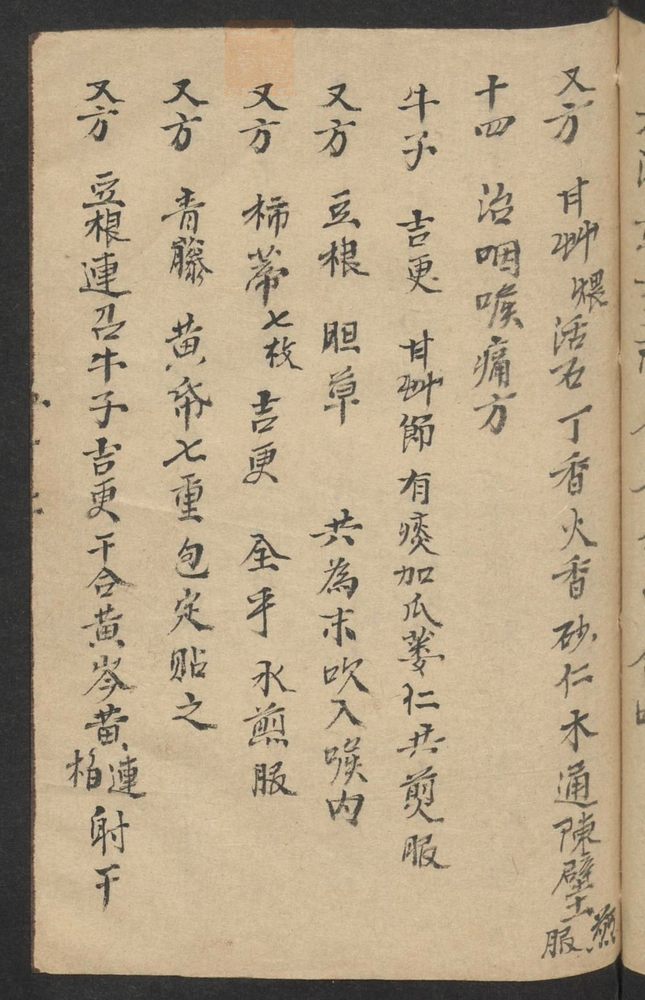 又方 甘艸 煨活石 丁香 火香 砂仁 木通 陳壁土 煎服
十四 治咽喉痛方
牛子 吉更 甘艸節 有痰加瓜蔞仁共煎服
又方 豆根 胆草 共為末吹入喉内
又方 柿蒂七枚 吉更 全乎 水煎服
又方 青藤 黄帋七重包定貼之
又方 豆根連召牛子吉更干合黄岑黄連柏射干